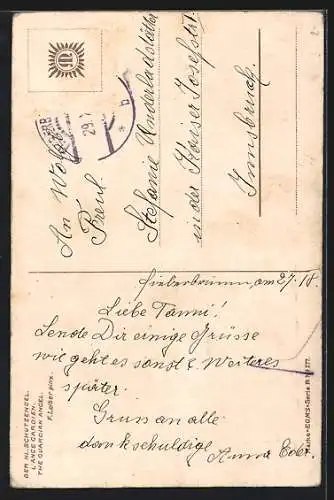 An Wohlg.
Frl.
Stefanie Unterladstätter
in der Kaiser Josefstr.
Innsbruck.
29.
b
M
Fieberbrunn, am 27. 18.
Liebe Fanni!
Sende Dir einige Grüsse
wie geht es sonst? Weiteres
später.
Gruss an alle
dankschuldige
Anna Eder
DER HL. SCHUTZENGEL.
L'ANGE GARDIEN.
THE GUARDIAN ANGEL.
F. Loser pinx.